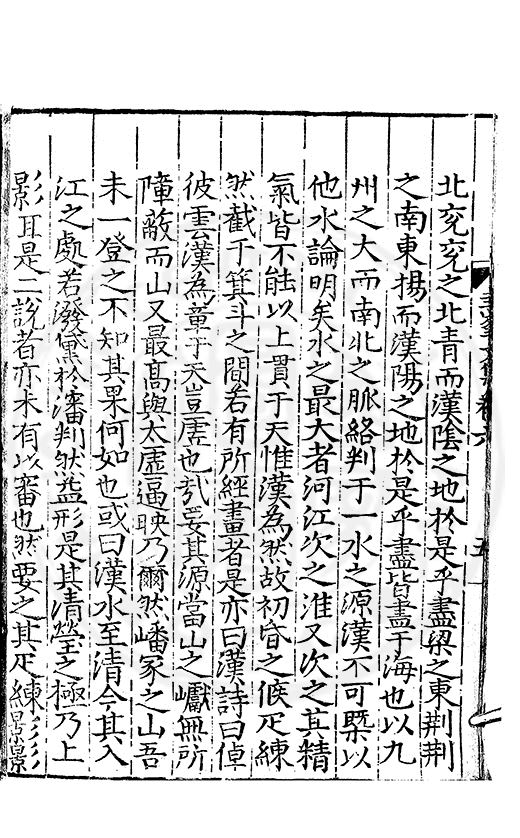 北兖兖之北青而漢陰之地於是乎盡梁之東荆荆
之南東揚而漢陽之地於是乎盡皆盡于海也以九
州之大而南北之脈絡判于一水之源漢不可槩以
他水論明矣水之最大者河江次之淮又次之其精
氣皆不能以上貫于天惟漢為然故初昏之候疋練
然截于箕斗之間若有所經畫者是亦曰漢詩曰倬
彼雲漢為章于天豈虛也哉妥其源當山之巘無所
障蔽而山又最高與太虛逼映乃爾然嶓冢之山吾
未一登之不知其果何如也或曰漢水至清今其入
江之處若潑黛於瀋判然益形是其清瑩之極乃上
影耳是二說者亦未有以審也然要之其疋練影影